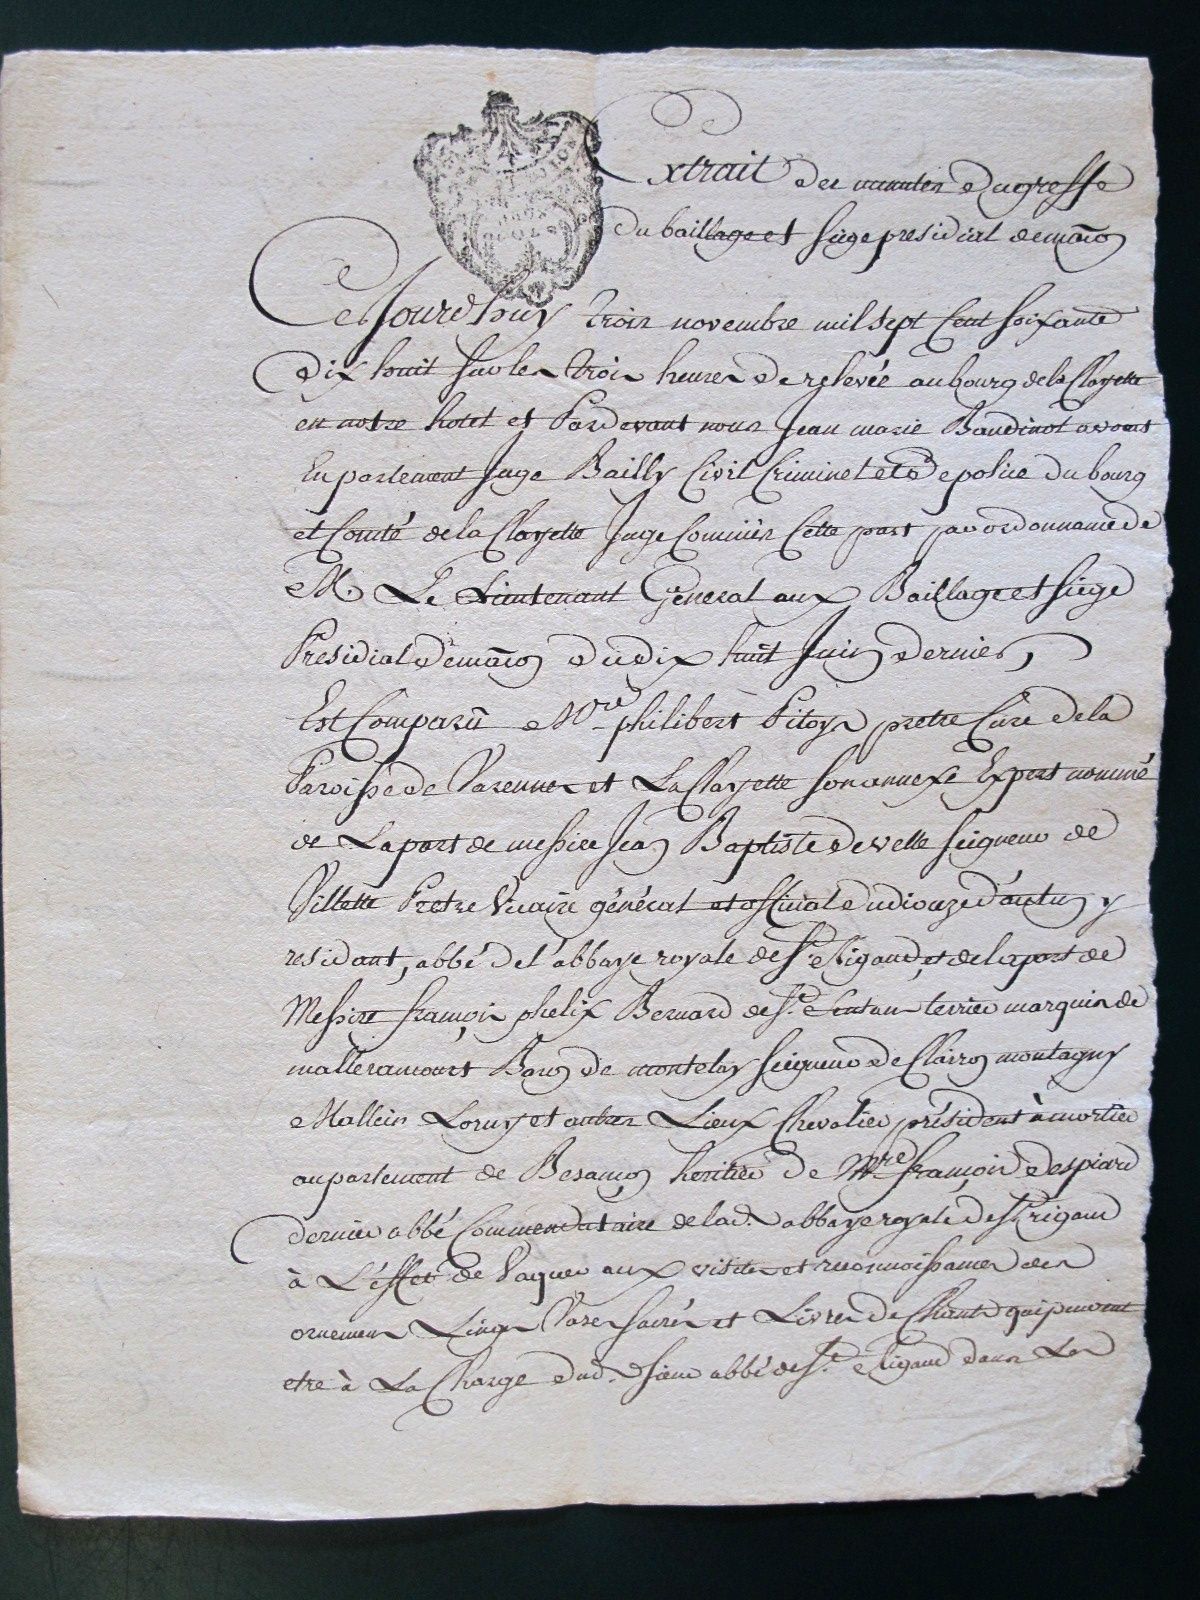 Extrait des minutes du greffe
du baillage et siege presidial de mâcõ
Ce Jourdhuy trois novembre mil sept Cent soixante
dix huit sur les trois heures de relevée au bourg de la Clayette
en notre hotel et Pardevant nous Jean marie Baudinot avocat
En parlement Juge Bailly Civil Criminel et de police du bourg
et Comté de la Clayette Juge Commis Cette part par ordonnance de
M. Le Lieutenant Géneral aux Baillage et siege
Presidial de mâcõ du dix huit Juin dernier,
Est Comparû Mre philibert Pitoys pretre Curé de la
Paroisse de Varennes et La Clayette son annexe Expert nommé
de La part de messire Jean Baptiste de velle seigneur de
Villette Pretre Vicaire général et official du diocaze d'autun y
residant, abbé de l'abbaye royale de St Rigaud, et de la part de
Messire françois phelix Bernard de Ste terrier marquis de
mallerancourt Baron de montelay seigneur de Clairon montagny
Mallein Loruy et autres Lieux Chevalier président à mortier
au parlement de Besançon heritier de Mre françois despiard
dernier abbé Commendataire de lad. abbaye royale de St rigaud
à L'effet de Vaquer aux visites et reconnoissances des
ornemens Linge Vases sacrés et Livres de Chants qui peuvent
etre à La Charge dud. sieur abbé de St. Rigaud dans Les